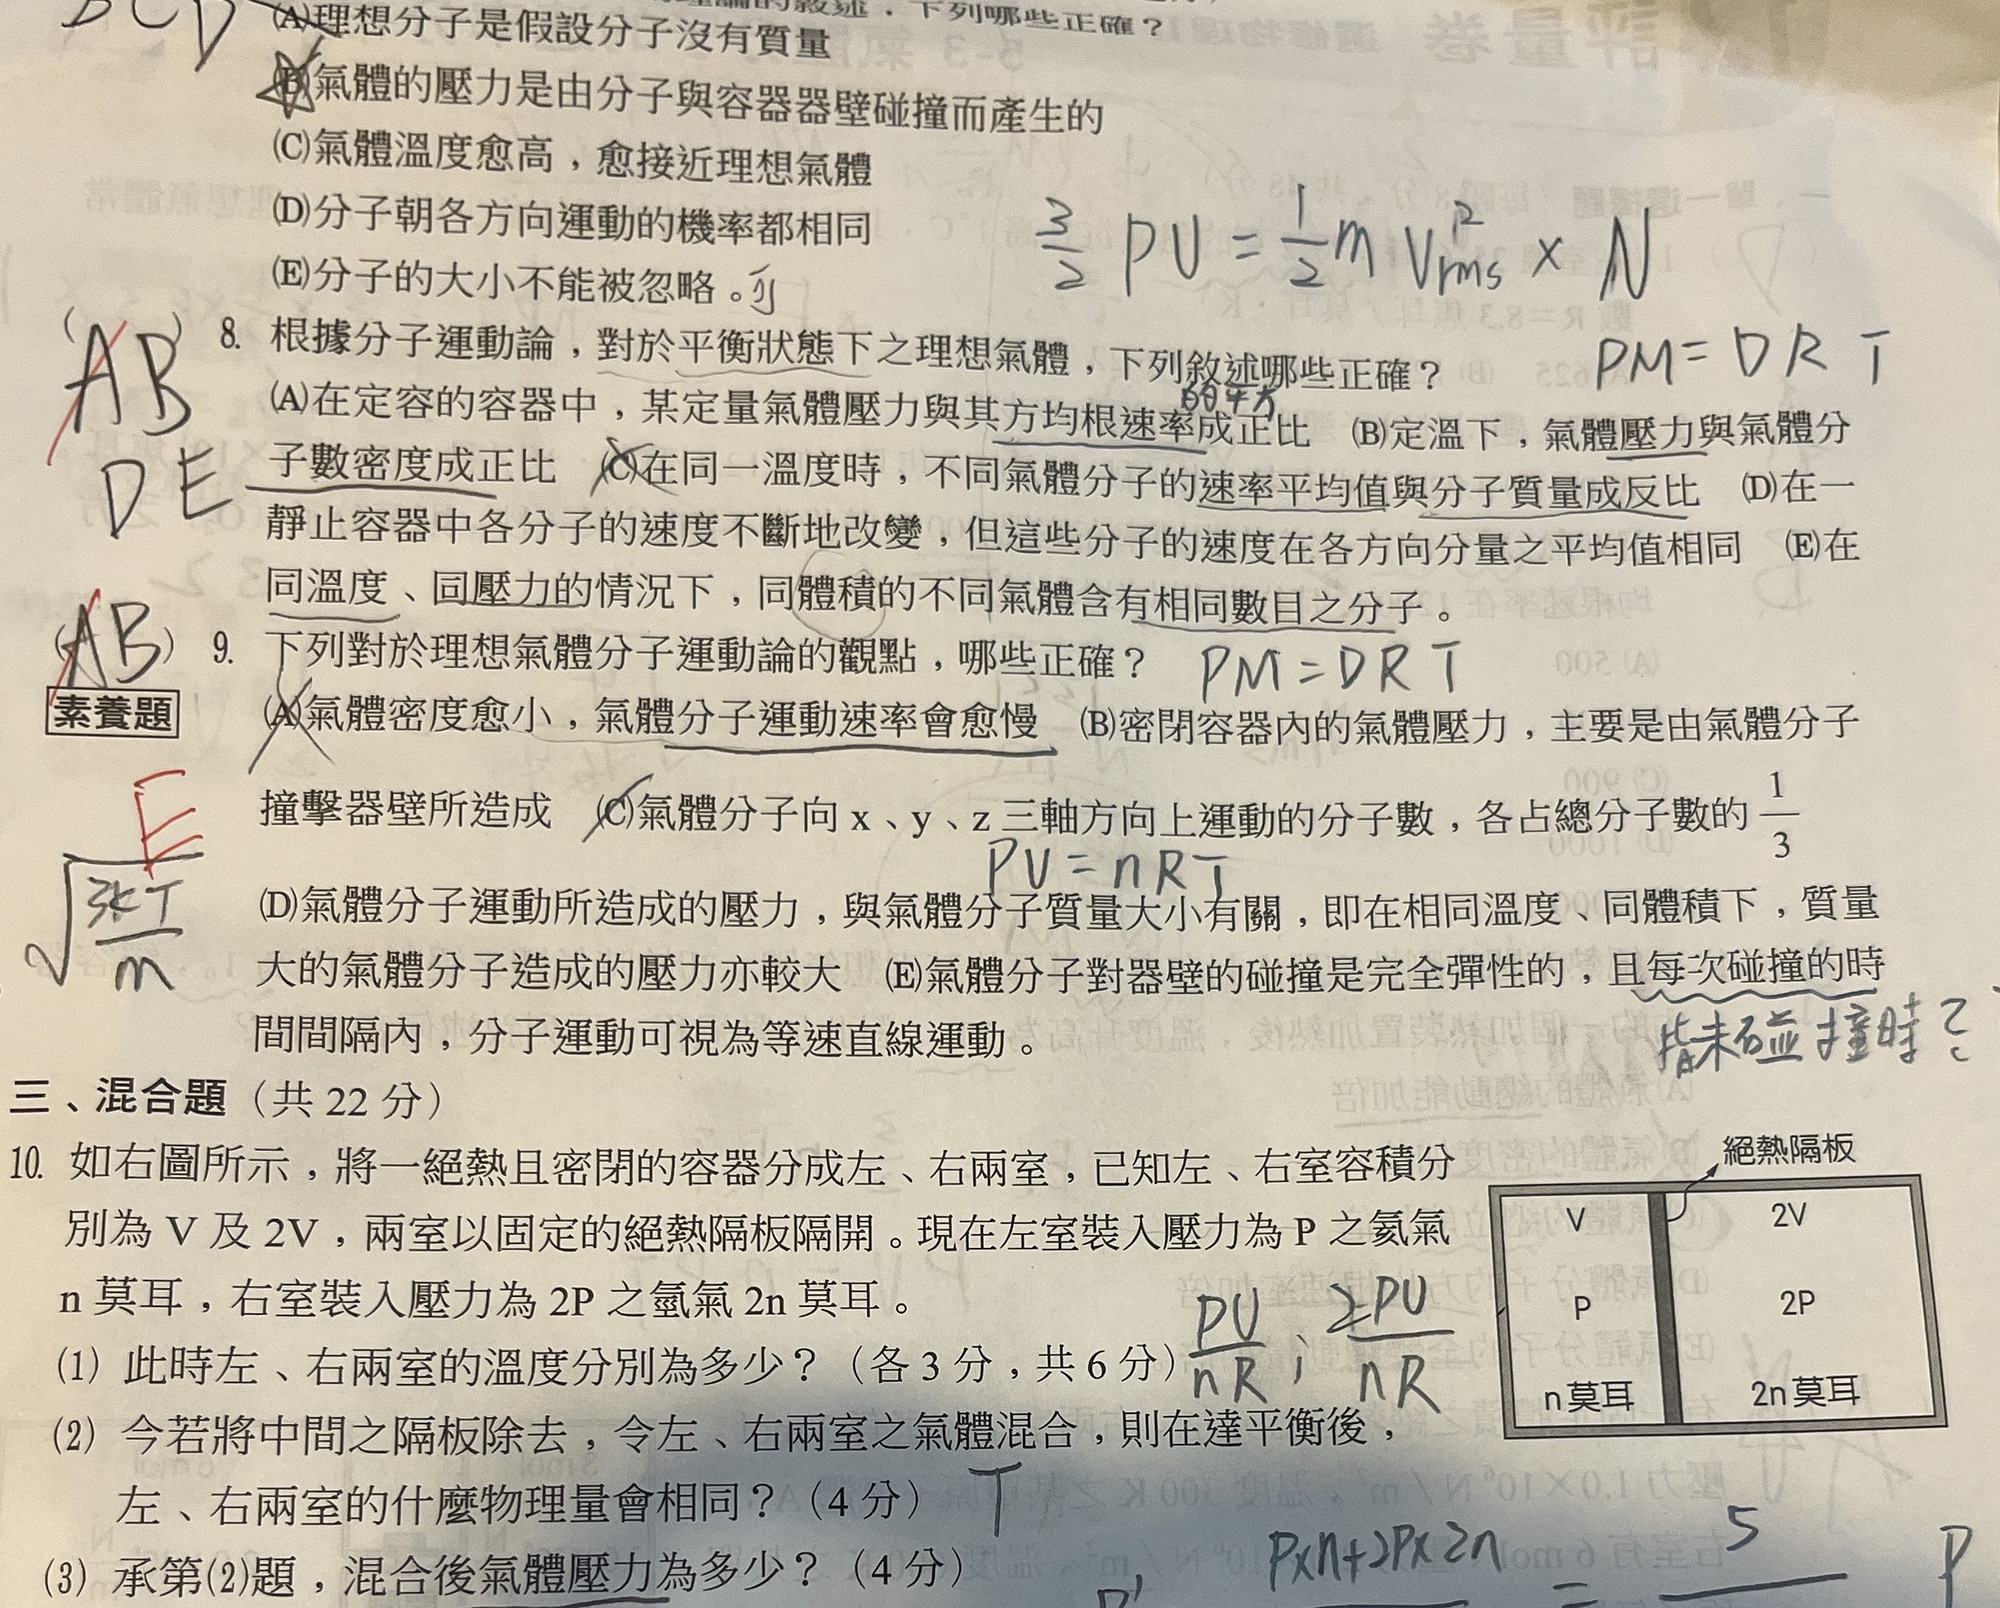 BCD
理論的敘述，下列哪些正確？
(A)理想分子是假設分子沒有質量
(B)氣體的壓力是由分子與容器器壁碰撞而產生的
(C)氣體溫度愈高，愈接近理想氣體
(D)分子朝各方向運動的機率都相同
(E)分子的大小不能被忽略。可
3/2 PV = 1/2 m Vrms² × N
(AB DE) 8. 根據分子運動論，對於平衡狀態下之理想氣體，下列敘述哪些正確？
PM = DRT
的平方
(A)在定容的容器中，某定量氣體壓力與其方均根速率成正比 (B)定溫下，氣體壓力與氣體分
子數密度成正比 (C)在同一溫度時，不同氣體分子的速率平均值與分子質量成反比 (D)在一
靜止容器中各分子的速度不斷地改變，但這些分子的速度在各方向分量之平均值相同 (E)在
同溫度、同壓力的情況下，同體積的不同氣體含有相同數目之分子。
(AB) 9. 下列對於理想氣體分子運動論的觀點，哪些正確？ PM = DRT
素養題
(A)氣體密度愈小，氣體分子運動速率會愈慢 (B)密閉容器內的氣體壓力，主要是由氣體分子
E
撞擊器壁所造成 (C)氣體分子向 x、y、z 三軸方向上運動的分子數，各占總分子數的 1/3
PV = nRT
√(3kT/m)
(D)氣體分子運動所造成的壓力，與氣體分子質量大小有關，即在相同溫度、同體積下，質量
大的氣體分子造成的壓力亦較大 (E)氣體分子對器壁的碰撞是完全彈性的，且每次碰撞的時
間間隔內，分子運動可視為等速直線運動。
指未碰撞時？
三、混合題（共 22 分）
10. 如右圖所示，將一絕熱且密閉的容器分成左、右兩室，已知左、右室容積分
別為 V 及 2V，兩室以固定的絕熱隔板隔開。現在左室裝入壓力為 P 之氦氣
n 莫耳，右室裝入壓力為 2P 之氬氣 2n 莫耳。
絕熱隔板
V 2V
P 2P
n 莫耳 2n 莫耳
(1) 此時左、右兩室的溫度分別為多少？（各 3 分，共 6 分） PV/nR ; 2PV/nR
(2) 今若將中間之隔板除去，令左、右兩室之氣體混合，則在達平衡後，
左、右兩室的什麼物理量會相同？（4 分） T
(3) 承第(2)題，混合後氣體壓力為多少？（4 分）
P×n+2P×2n = 5 P